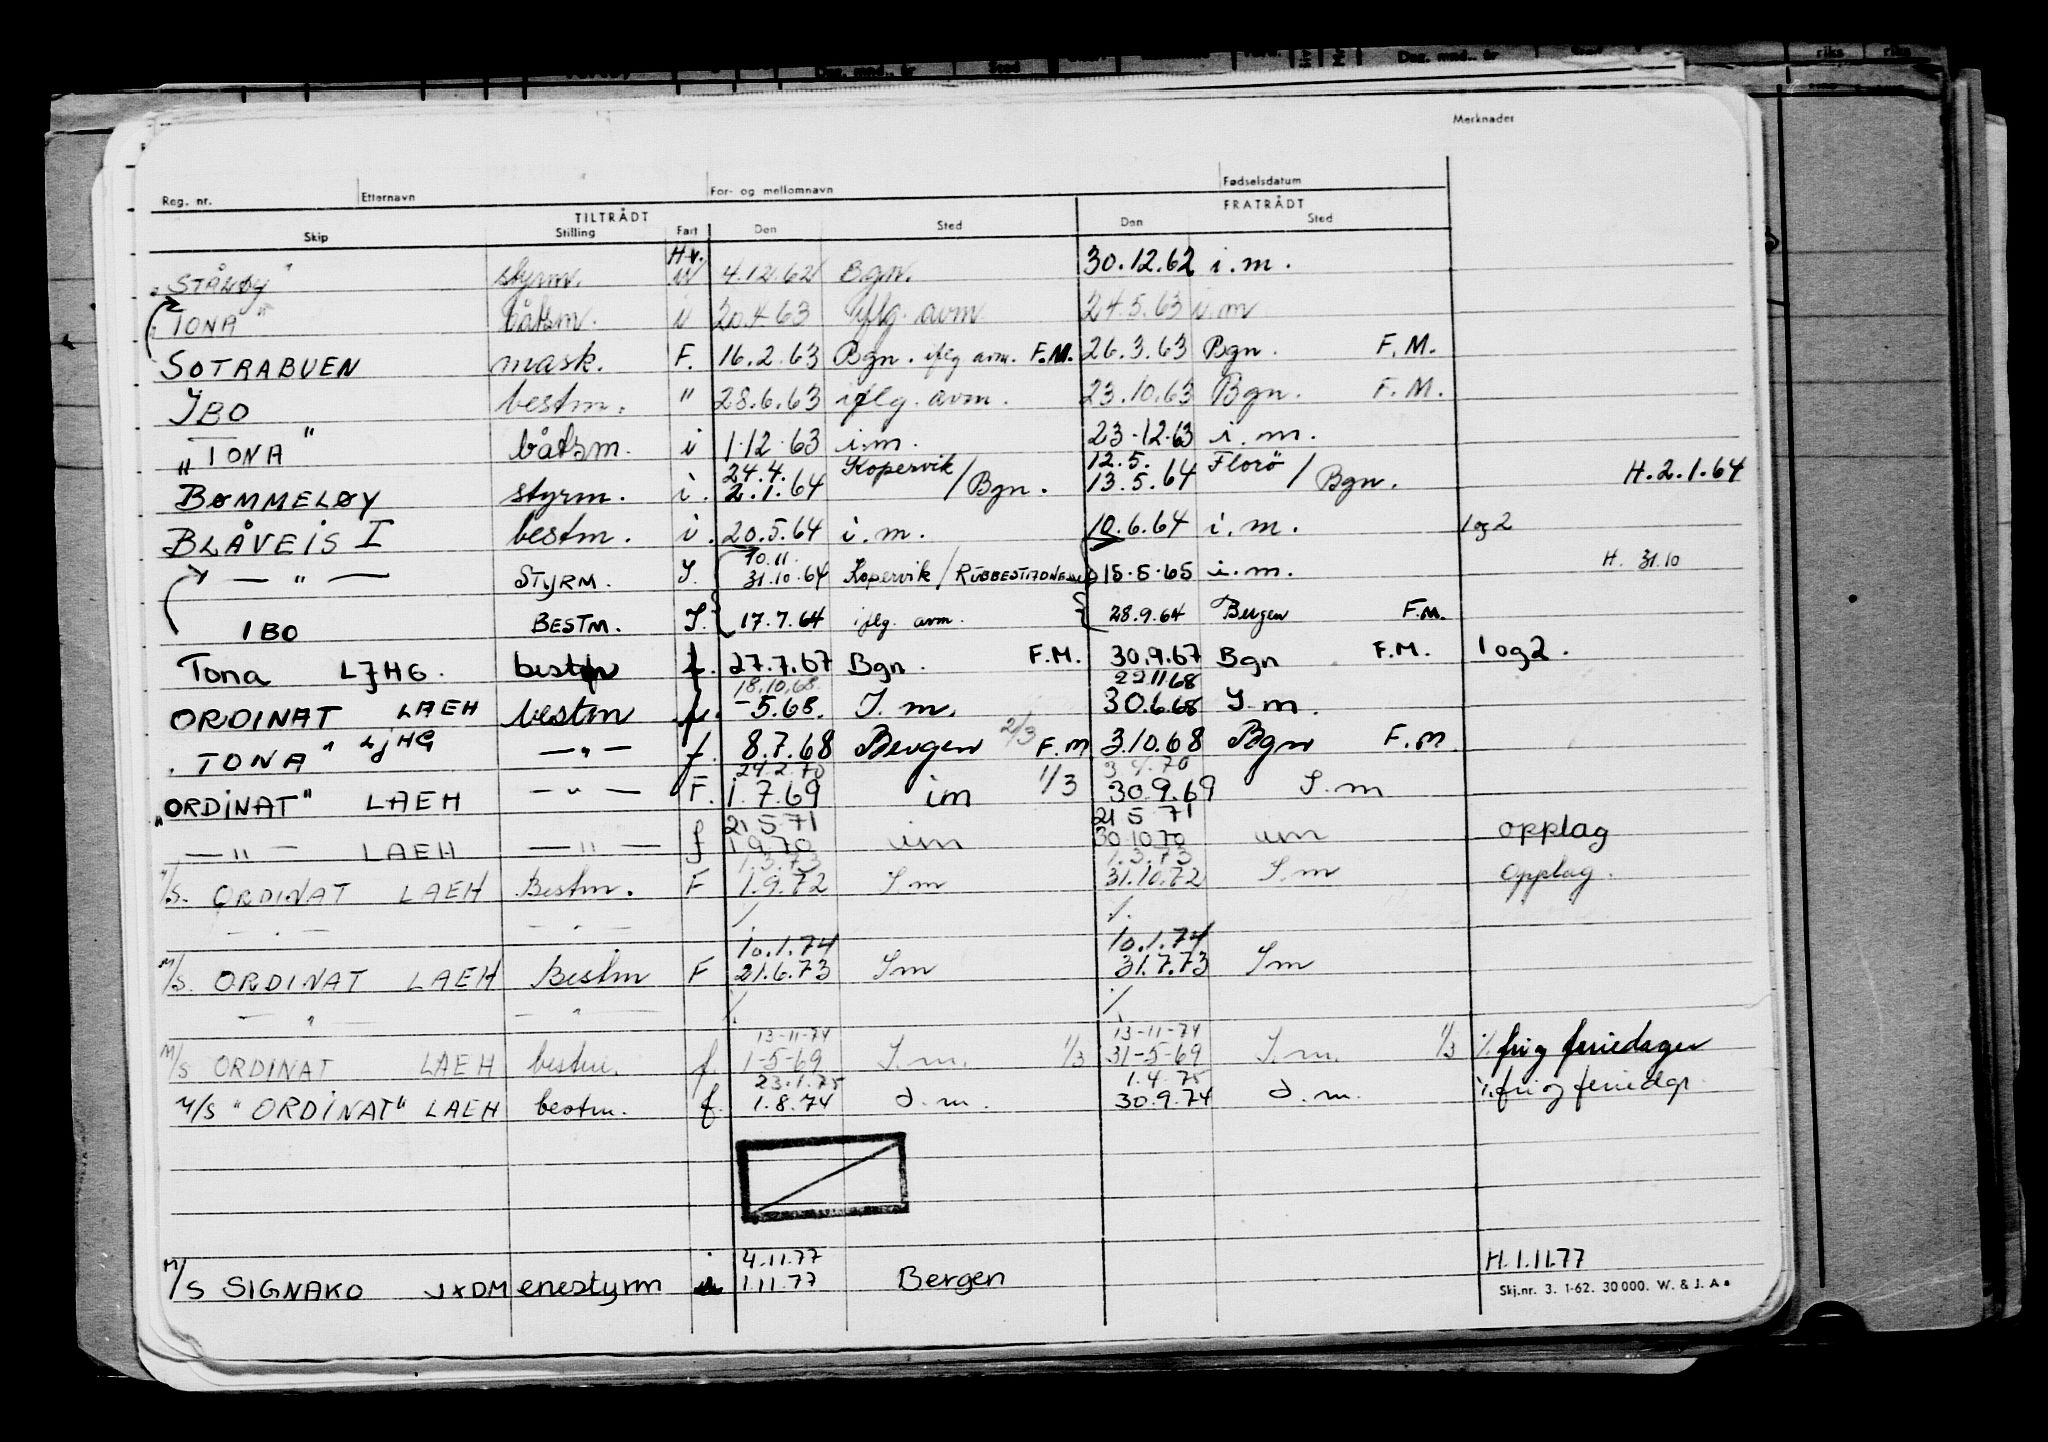 Merknader
Reg. nr. Etternavn For- og mellomnavn Fødselsdatum
TILTRÅDT FRATRÅDT
Skip Stilling Fart Den Sted Den Sted
Hv.
STÅLØY" styrm. 4.12.62 Bgn. 30.12.62 i.m.
TONA" båtsm. i 20.4.63 iflg. avm 24.5.63 i.m
SOTRABUEN mask. F. 16.2.63 Bgn. iflg avm. F.M. 26.3.63 Bgn. F.M.
IBO bestm. " 28.6.63 iflg. avm. 23.10.63 Bgn. F.M.
"TONA" båtsm. i 1.12.63 i.m. 23.12.63 i.m.
24.4. Kopervik 12.5. Florø
BØMMELØY styrm. i. 2.1.64 / Bgn. 13.5.64 / Bgn. H.2.1.64
BLÅVEIS I bestm. i. 20.5.64 i.m. 10.6.64 i.m. 1og2
10.11.
— " — STYRM. I. 31.10.64 Kopervik / 15.5.65 i.m. H. 31.10
IBO BESTM. I. 17.7.64 iflg. avm. 28.9.64 Bergen F.M.
Tona LJHG. bestm f. 27.7.67 Bgn. F.M. 30.9.67 Bgn F.M. 1og2.
18.10.68 22.11.68
ORDINAT LAEH bestm f. -5.68. I.m. 30.6.68 I.m.
"TONA" LJHG — " — f. 8.7.68 Bergen 2/3 F.M 3.10.68 Bgn F.M.
24.2.70 3.4.70
"ORDINAT" LAEH — " — F. 1.7.69 im 1/3 30.9.69 I.m
21 5 71 21 5 71
— " — LAEH — " — f 1.9.70 im 30.10.70 im opplag
1.3.73 1.3.73
M/S. ORDINAT LAEH Bestm. F 1.9.72 I m 31.10.72 I.m opplag.
— " — — " — %. %.
10.1.74 10.1.74
M/S. ORDINAT LAEH Bestm F 21.6.73 I m 31.7.73 I m
— " — — " — %. %.
13-11-74 13-11-74
M/S ORDINAT LAEH bestm. f. 1-5-69 I.m. 1/3 31-5-69 I.m. 1/3 % fri og feriedager
23.1.75 1.4.75
M/S "ORDINAT" LAEH bestm. f. 1.8.74 I.m. 30.9.74 I.m. %. fri og feriedgr.
4.11.77 H.1.11.77
M/S SIGNAKO JXDM enestyrm 1.11.77 Bergen
Skj.nr. 3. 1-62. 30000. W. & J. A s